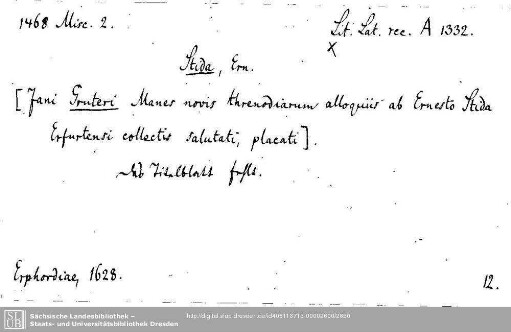 1468 Misc. 2.
Lit. Lat. rec. A 1332.
x
Stida, Ern.
[Jani Gruteri Manes novis threnodiarum alloquiis ab Ernesto Stida
Erfurtensi collectis salutati, placati].
Das Titelblatt fehlt.
Erphordiae, 1628.
12.
Sächsische Landesbibliothek –
Staats- und Universitätsbibliothek Dresden